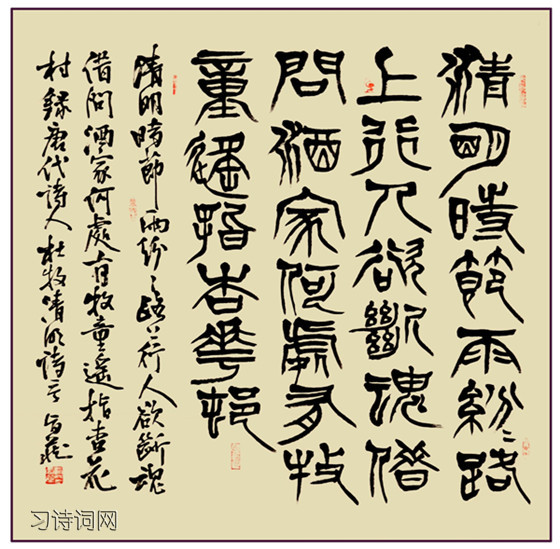 清明時節雨紛〻路
上行人欲斷魂借
問酒家何處有牧
童遙指杏華邨
清明時節雨紛〻路上行人欲斷魂
借問酒家何處有牧童遥指杏花
村録唐代詩人杜牧清明詩
习诗词网